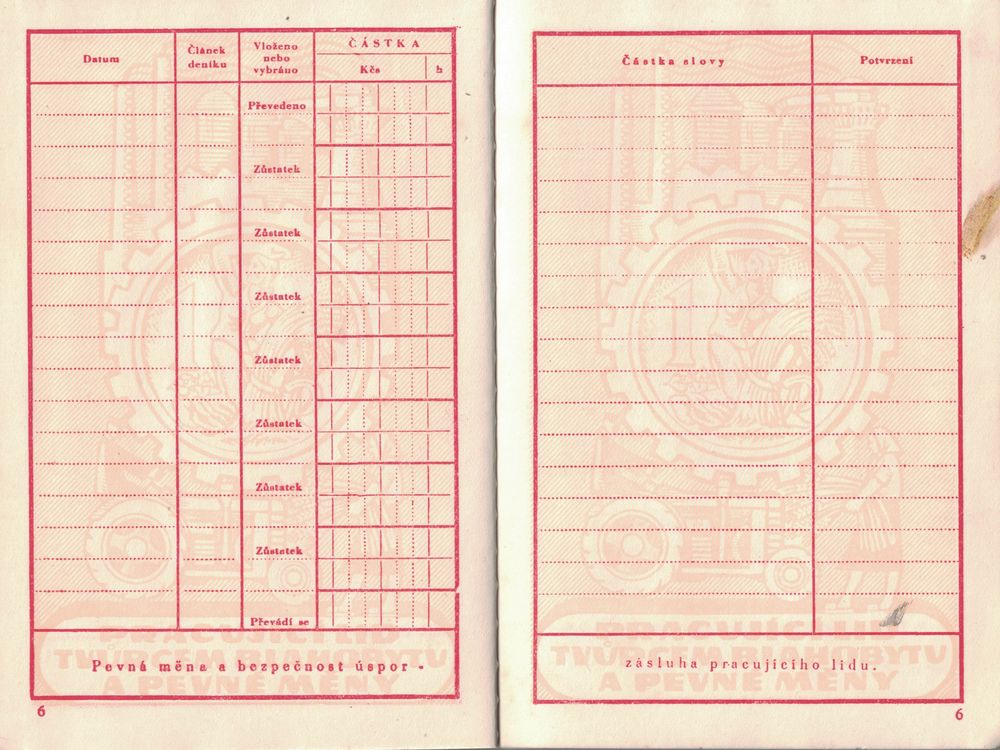 Datum
Článek deníku
Vloženo nebo vybráno
ČÁSTKA
Kčs
h
Převedeno
Zůstatek
Zůstatek
Zůstatek
Zůstatek
Zůstatek
Zůstatek
Zůstatek
Převádí se
PRACUJÍCÍ LID
TVŮRCEM BLAHOBYTU
A PEVNÉ MĚNY
Pevná měna a bezpečnost úspor -
6
Částka slovy
Potvrzení
1
PRACUJÍCÍ LID
TVŮRCEM BLAHOBYTU
A PEVNÉ MĚNY
zásluha pracujícího lidu.
6